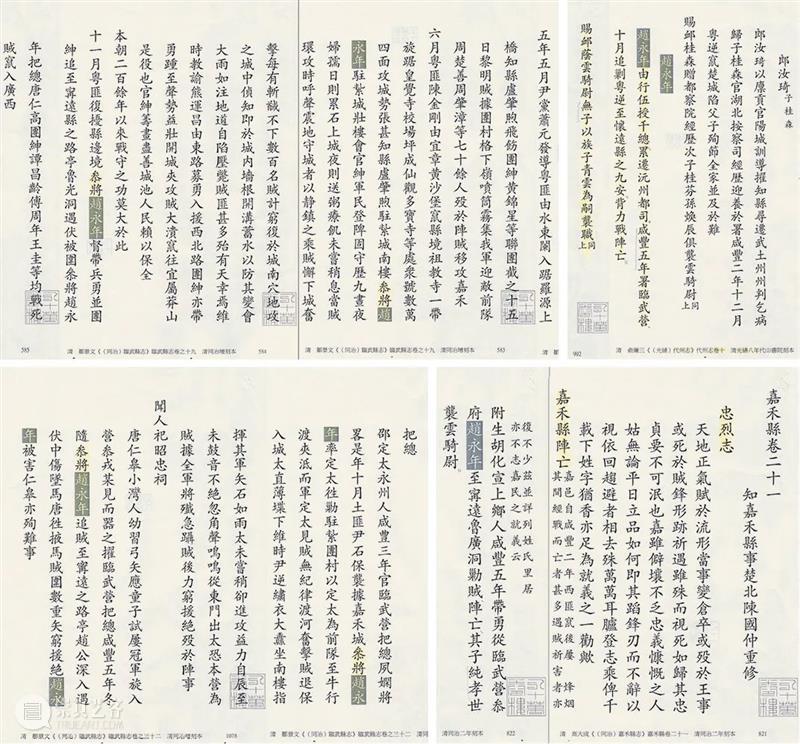 五年五月尹黨蕭元發導粵匪由水東闌入踞羅源上
橋知縣盧肇煦飛飭團紳黄錦星等聯團截之十五
日黎明賊據團村格下嶺噴筒霧集我軍迎敵前隊
周楚善周肇漳等七十餘人歿於陣賊移攻嘉禾
六月粵匪陳金剛由宜章黄沙堡竄縣境祖教寺一帶
旋踞皇覺寺校場坪成仙觀多寶寺等處衆號數萬
四面攻城勢張甚知縣盧肇煦駐紮城南樓叅將趙
永年駐紮城壯樓會官紳軍民登陴固守歷九晝夜
婦孺日則累石上城夜則送粥療飢未嘗稍息當賊
環攻時呼聲震地守城者以静鎮之乘賊懈下城奮
擊每有斬馘不下數百名賊計窮復於城南穴地攻
之城中偵知即於城内墻根開溝蓄水以防其變會
大雨如注地道自陷壓斃賊匪甚多殆有天幸焉維
時教諭熊運昌由東路募勇入援西北路團紳亦帶
勇踵至聲勢益壯開城夾攻賊大潰竄往宜屬莽山
是役也官紳籌畫盡善城池人民賴以保全
本朝二百餘年以來戰守之功莫大於此
十一月粵匪復擾縣邊境叅將趙永年督帶兵勇並團
紳追至寧遠縣之路亭魯光洞遇伏被圍叅將趙永
年把總唐仁高團紳譚昌齡傅周年王圭等均戰死
賊竄入廣西
585
清 鄒景文《(同治)臨武縣志》臨武縣志卷之十九 清同治增刻本
584
583
清 鄒景文《(同治)臨武縣志》臨武縣志卷之十九 清同治增刻本
郎汝琦 子桂森
郎汝琦以廪貢官陽城訓導擢知縣尋遷武土州州判乞病
歸子桂森官湖北按察司經歷迎養於署咸豐二年十二月
粵逆竄楚城陷父子殉節全家並及於難
賜卹桂森贈都察院經歷次子桂芬孫煥辰俱襲雲騎尉 同上
趙永年
趙永年由行伍授千總累遷沅州都司咸豐五年署臨武營
十月追剿粵逆至懷遠縣之九安背力戰陣亡
賜卹蔭雲騎尉無子以族子青雲為嗣襲職 同上
992
清 俞廉三《(光緒)代州志》代州志卷十 清光緒八年代山書院刻本
把總
邵定太永州人咸豐三年官臨武營把總夙嫻將
畧是年十月土匪尹石保襲據嘉禾城叅將趙永
年率定太往勦駐紮團村以定太為前隊至牛行
渡夾泜而軍定太見賊無紀律渡河奮擊賊退保
入城太直薄堞下維時尹逆繡衣大纛坐南樓指
揮其軍矢石如雨太未嘗稍卻進攻益力自辰至
未鼓音不絶忽角聲嗚嗚從東門出太恐本營為
賊據全軍將殲急躡賊後力窮援絶歿於陣事
聞人祀昭忠祠
唐仁皋小灣人幼習弓矢應童子試屢冠軍旋入
營叅戎某見而器之擢臨武營把總咸豐五年冬
隨叅將趙永年追賊至寧遠之路亭趙公深入遇
伏中傷墜馬唐往掖馬賊圍數重矢窮援絶趙永
年被害仁皋亦殉難事
清 鄒景文《(同治)臨武縣志》臨武縣志卷之三十二 清同治增刻本
1078
清 鄒景文《(同治)臨武縣志》臨武縣志卷之三十二 清同治增刻本
嘉禾縣卷二十一
知嘉禾縣事楚北陳國仲重修
忠烈志
天地正氣賦於流形當事變倉卒或歿於王事
或死於賊鋒形跡祈遇雖殊而視死如歸其忠
貞要不可泯也嘉雖僻壤不乏忠義慷慨之人
姑無論平日立品如何即其蹈鋒刃而不辭以
視依回趨避者相去殊萬萬耳臚登志乘俾千
載下姓字猶香亦足為就義之一勸歟
嘉禾縣陣亡 嘉邑自咸豐二年西匪竄後屢 烽烟
其間經戰而亡者甚多遇賊祈害者亦
復不少茲並詳列姓氏里居
亦不志嘉民之就義云
附生胡化宣上鄉人咸豐五年帶勇從臨武營叅
府趙永年至寧遠魯廣洞勦賊陣亡其子純孝世
襲雲騎尉
822
清同治二年刻本
清 高大成《(同治)嘉禾縣志》嘉禾縣卷二十一 清同治二年刻本
821